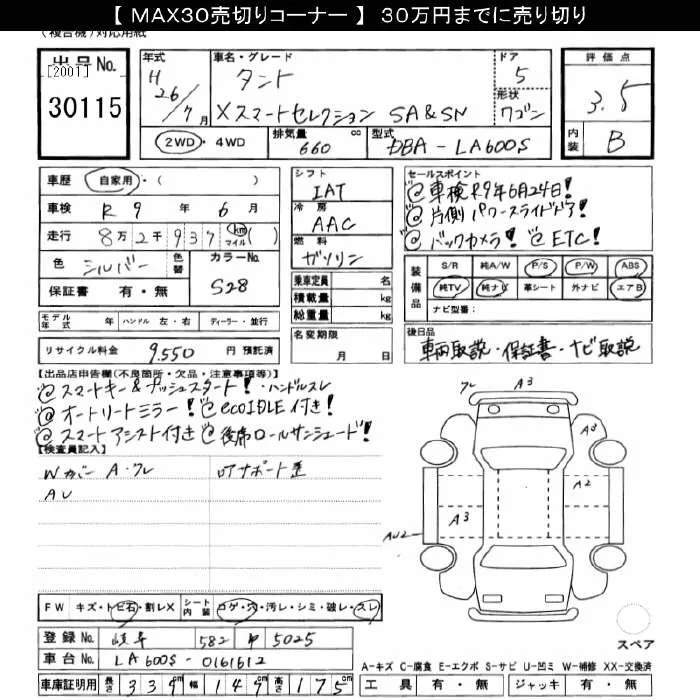 【 MAX30売切りコーナー 】 30万円までに売り切り
(複合機)対応用紙
出品No.
[2001]
30115
年式
H 26/7月
車名・グレード
タント
Xスマートセレクション SA&SN
ドア
5
形状
ワゴン
評価点
3.5
内装
B
2WD・4WD
排気量
660 cc
型式
DBA-LA600S
車歴 自家用・( )
車検 R 9 年 6 月
走行 8万2千937 km マイル ( )
色 シルバー 色替
カラーNo.
S28
保証書 有・無
モデル年式 年 ハンドル 左・右 ディーラー・並行
リサイクル料金 9,550 円 預託済
シフト
IAT
冷房
AAC
燃料
ガソリン
乗車定員 名
積載量 kg
総重量 kg
名変期限
月 日
セールスポイント
@車検R9年6月24日!
@片側パワースライドドア!
@バックカメラ! @ETC!
装備品
S/R 純A/W P/S P/W ABS
純TV 純ナビ 革シート 外ナビ エアB
ナビ型番:
後日品
車両取説・保証書・ナビ取説
【出品店申告欄(不良箇所・欠品・注意事項等)】
@スマートキー&プッシュスタート!・ハンドルスレ
@オートリートミラー! @ecoIDLE付き!
@スマートアシスト付き @後席ロールサンシェード!
【検査員記入】
Wカバー A・クレ
AU
ロアサポート歪
クレ
A3
A3
A2
A3
AU2
スペア
FW キズ・トビ石・割レX シート内装 コゲ・穴・汚レ・シミ・破レ・スレ
登録No. 岐阜 582 や 5025
車台No. LA600S-0161612
車庫証明用 長さ 339 幅 147 高さ 175 cm
A-キズ C-腐食 E-エクボ S-サビ U-凹ミ W-補修 XX-交換済
工具 有・無 ジャッキ 有・無